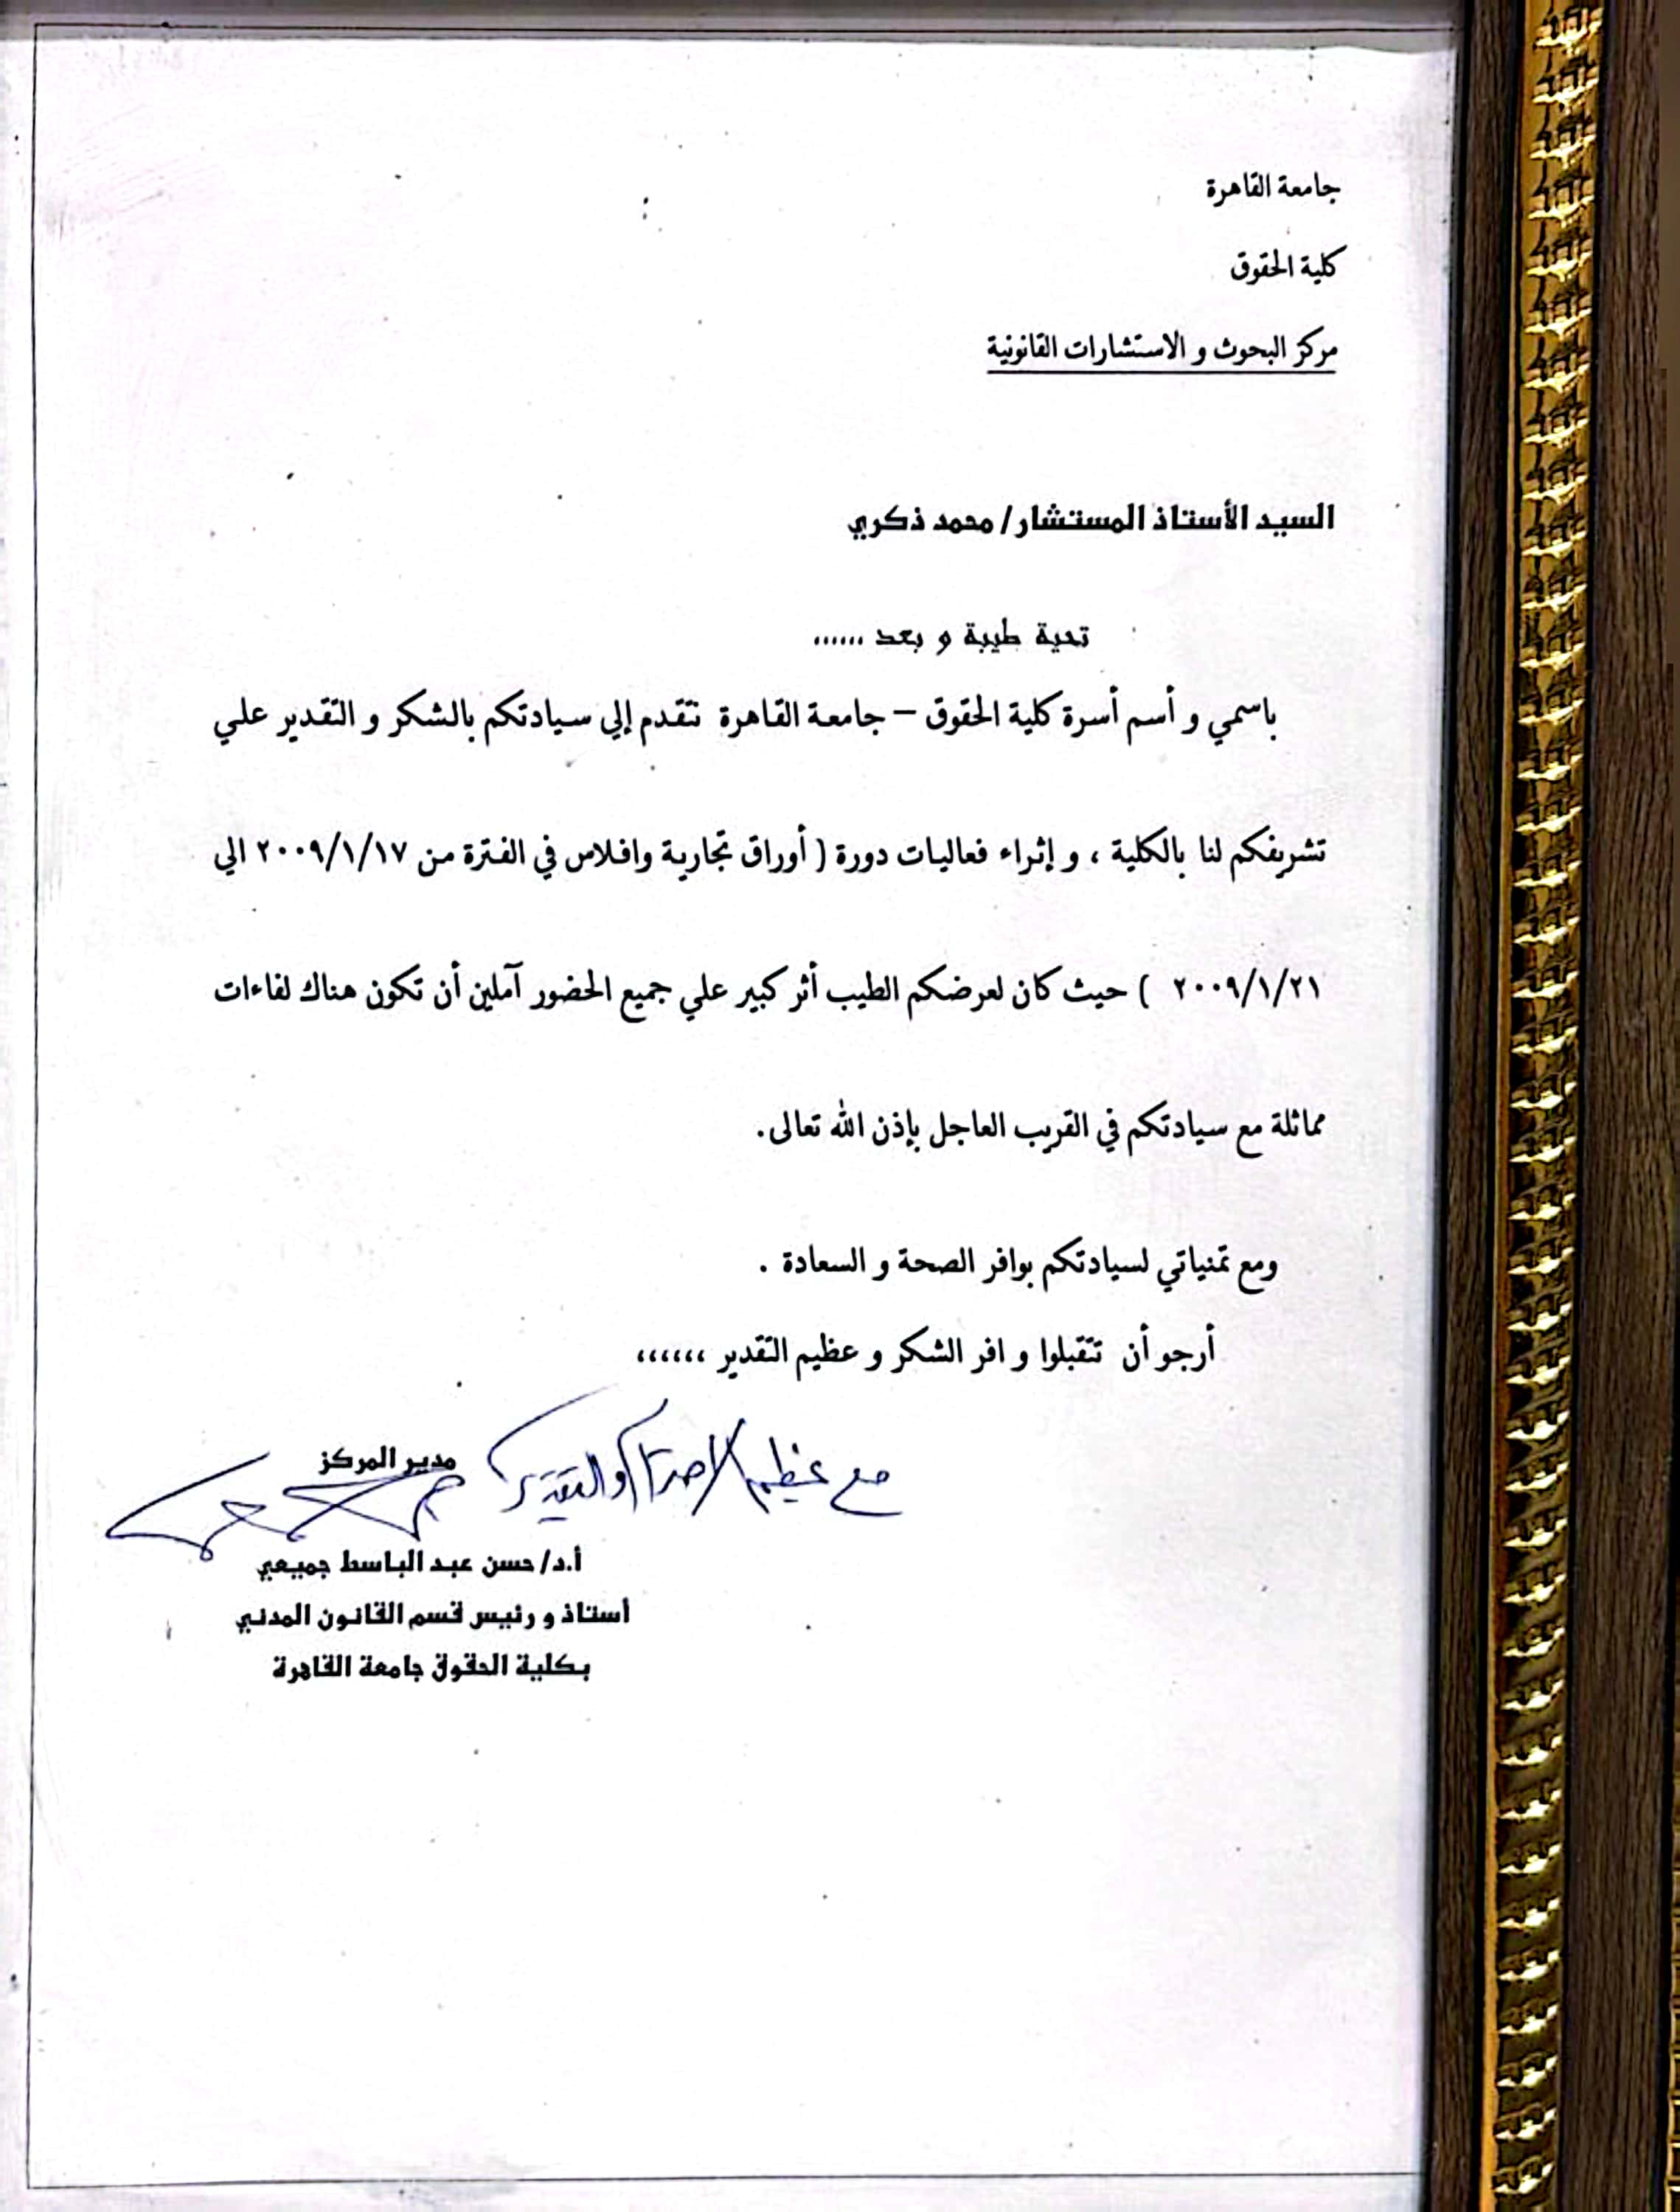 جامعة القاهرة
كلية الحقوق
مركز البحوث و الاستشارات القانونية
السيد الأستاذ المستشار/ محمد ذكري
تحية طيبة و بعد ......
باسمي و أسم أسرة كلية الحقوق – جامعة القاهرة نتقدم إلي سيادتكم بالشكر و التقدير علي
تشريفكم لنا بالكلية ، و إثراء فعاليات دورة ( أوراق تجارية وافلاس في الفترة من ٢٠٠٩/١/١٧ الي
٢٠٠٩/١/٢١ ) حيث كان لعرضكم الطيب أثر كبير علي جميع الحضور آملين أن تكون هناك لقاءات
مماثلة مع سيادتكم في القريب العاجل بإذن الله تعالى.
ومع تمنياتي لسيادتكم بوافر الصحة و السعادة .
أرجو أن تتقبلوا و افر الشكر و عظيم التقدير ،،،،،،
مع عظيم الاحترام والتقدير
مدير المركز
أ.د/ حسن عبد الباسط جميعي
أستاذ و رئيس قسم القانون المدني
بكلية الحقوق جامعة القاهرة